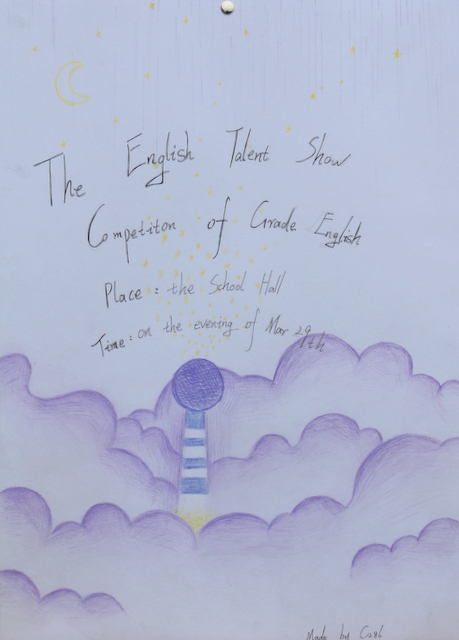 The English Talent Show
Competiton of Grade English
Place: the School Hall
Time: on the evening of Mar 29th
Made by